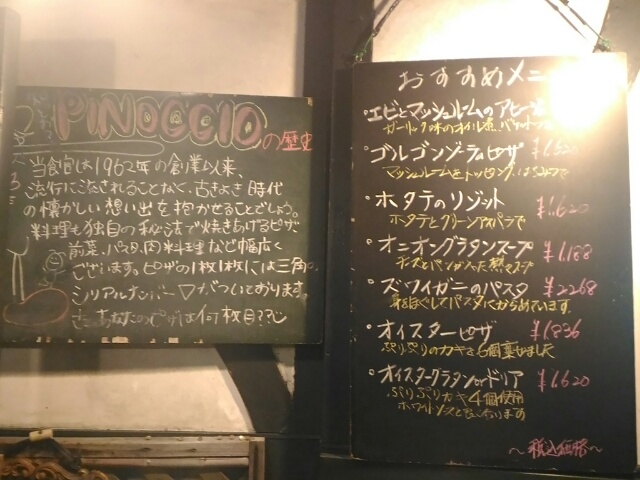 PINOCCIOの歴史
当食官は1962年の創業以来、
流行に流されることなく、古きよき時代
の懐かしい想い出を抱かせることでしょう。
料理も独自の秘法で焼きあげるピザ
前菜、パスタ、肉料理など幅広く
ございます。ピザの1枚1枚には三角の
シリアルナンバー▽がついております。
さぁあなたのピザは何枚目??
おすすめメニ
・エビとマッシュルームのアヒージ
ガーリック味のオイル煮、バケット
・ゴルゴンゾーラのピザ
マッシュルームをトッピング、はちみつで
・ホタテのリゾット ¥1,620
ホタテとグリーンアスパラで
・オニオングラタンスープ ¥1,188
チーズとパンが入った熱々スープ
・ズワイガニのパスタ ¥2268
身をほぐしてパスタにからめています。
・オイスターピザ ¥1,836
ぷりぷりのカキを6個乗せました
・オイスターグラタンorドリア ¥1,620
ぷりぷりカキ4個使用
ホワイトソースと
〜税込価格〜